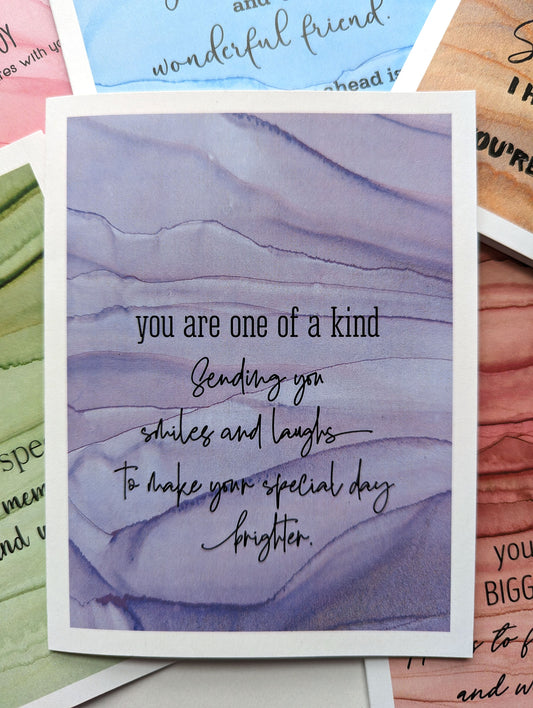 and
wonderful friend.
ahead is
you are one of a kind
Sending you
smiles and laughs
to make your special day
brighter.
I H
YOU'RE
and w
you
BIGG
to f
and w